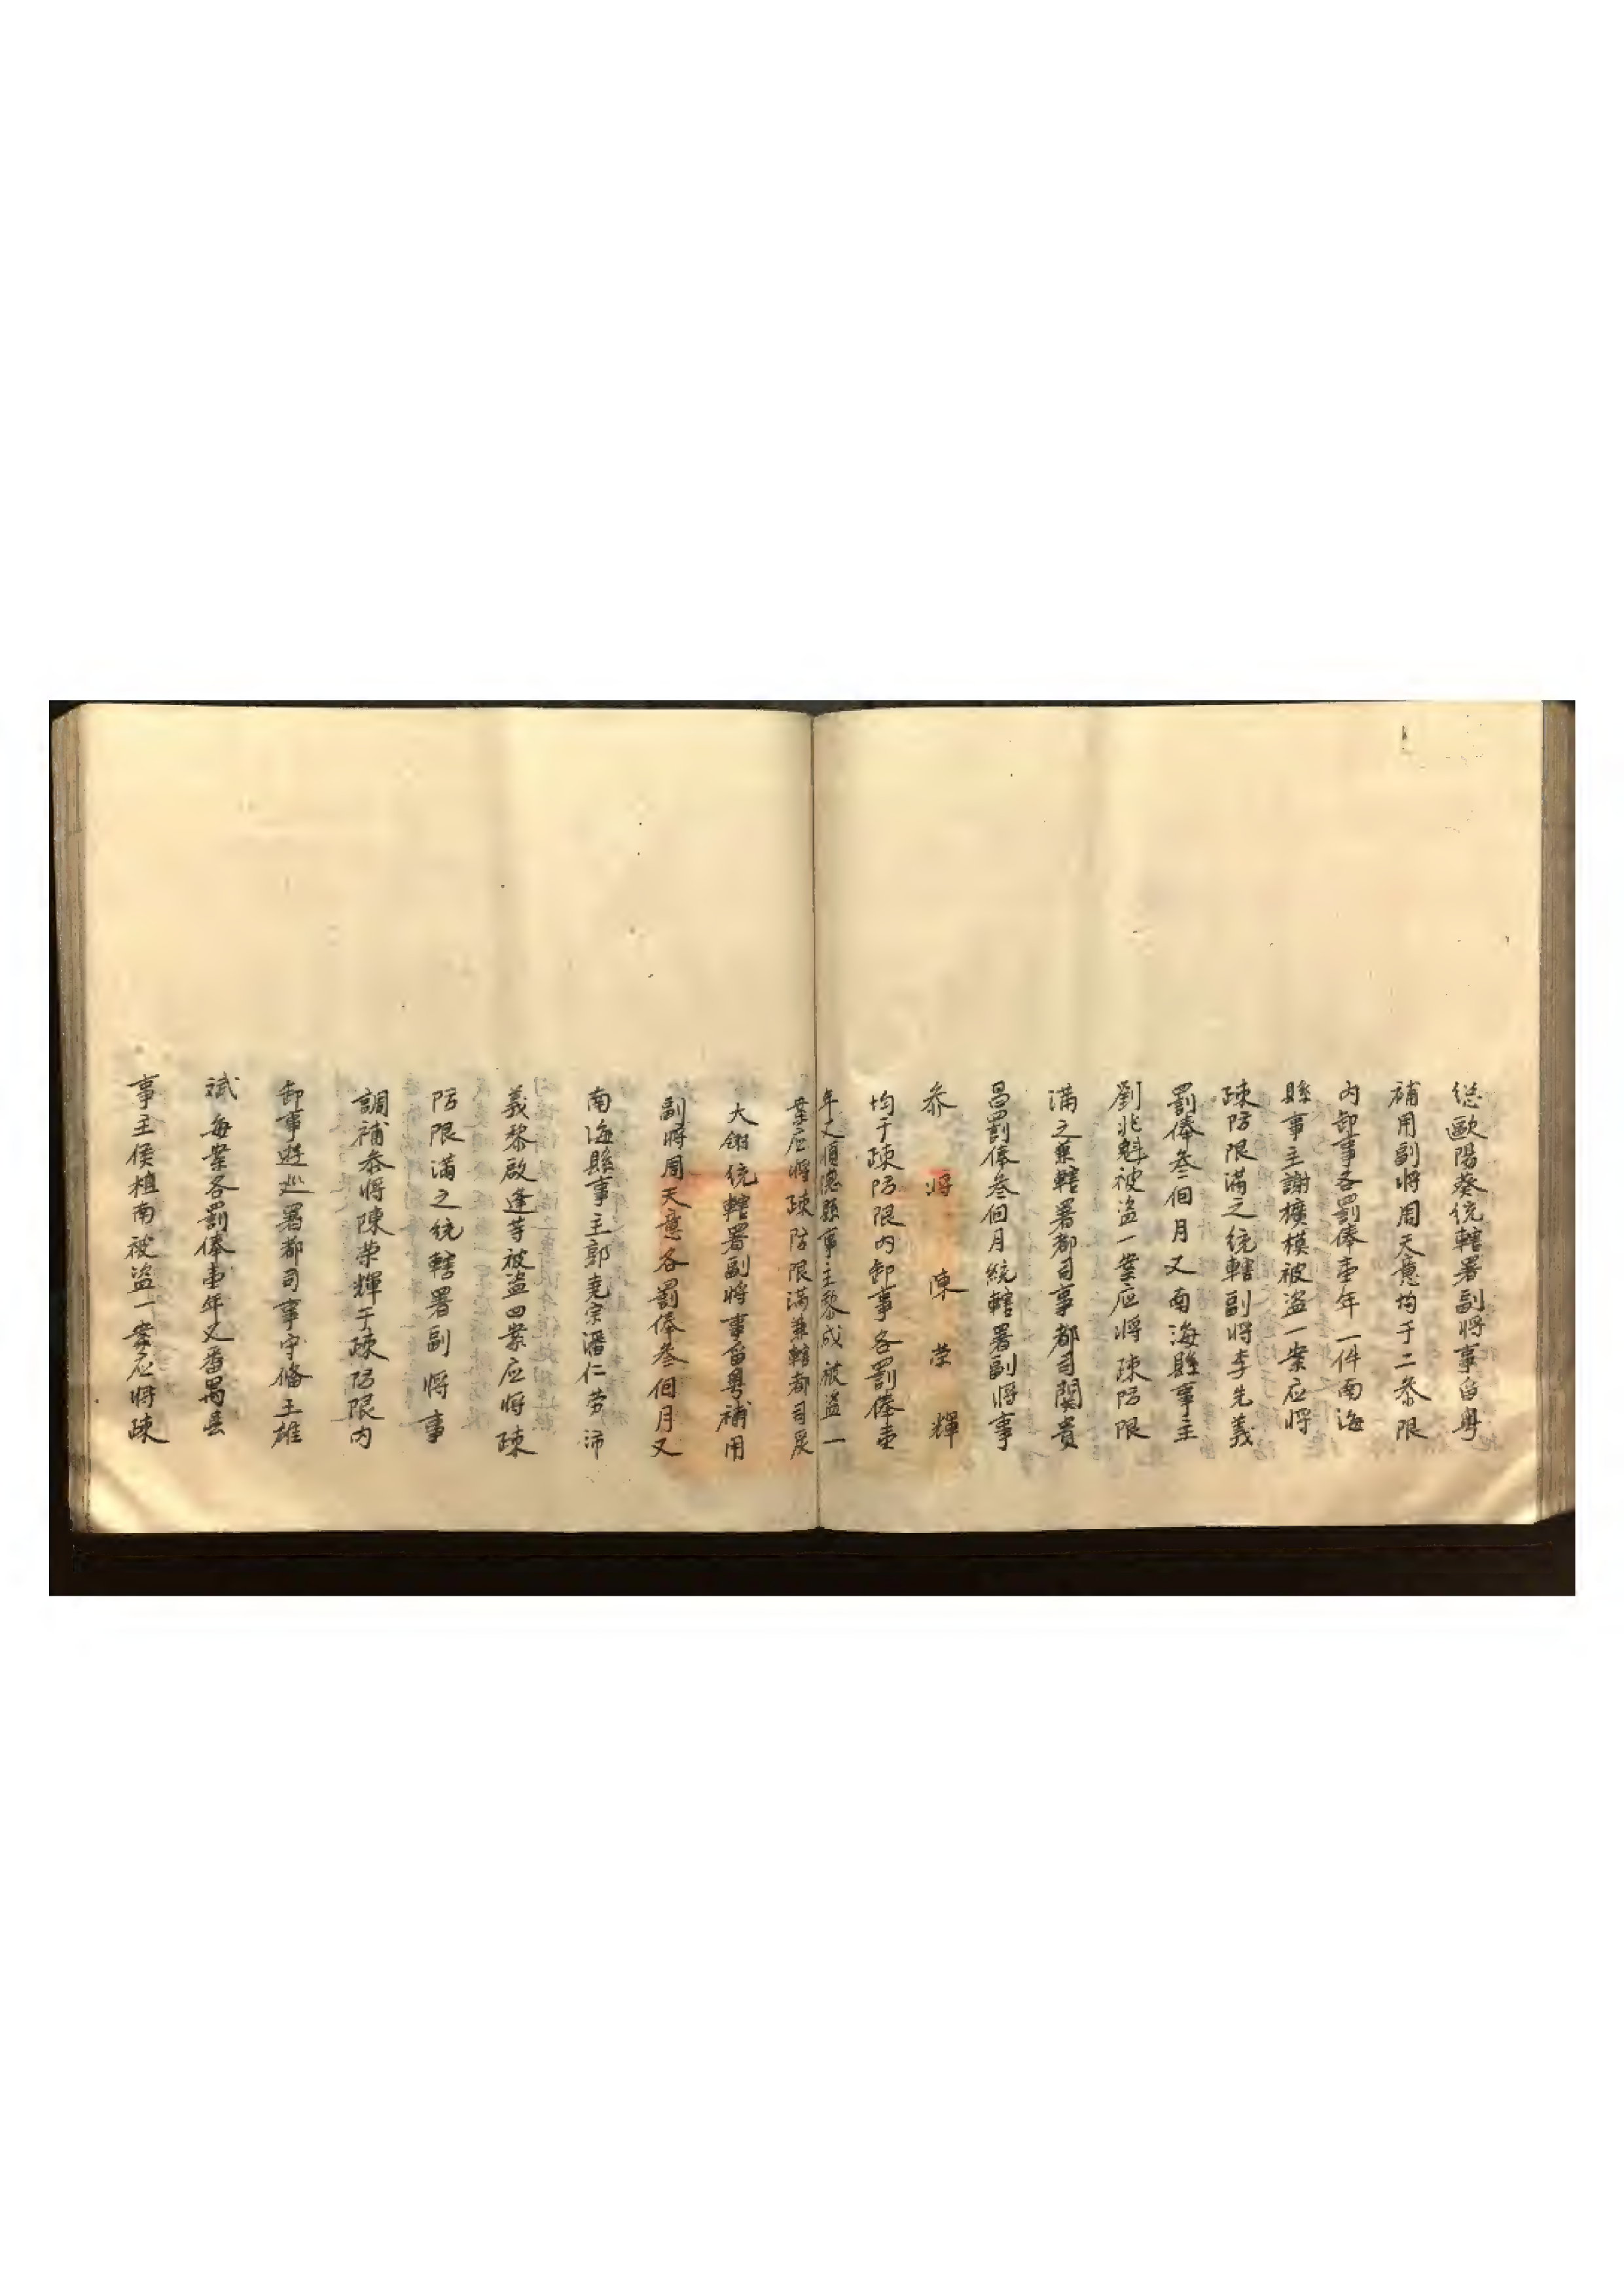 总歐陽葵统轄署副将事留粤
補用副将周天意均于二叅限
内卸事各罰俸壹年一件南海
縣事主謝横模被盗一案应将
疎防限滿之统轄副将李先義
罰俸叁個月又南海縣事主
劉兆魁被盗一案应将疎防限
满之兼轄署都司事都司関貴
昌罰俸叁個月統轄署副将事
叅将陳荣輝
均于疎防限内卸事各罰俸壹
年又順德縣事主黎成被盗一
案应将疎防限满兼轄都司晁
大鏘统轄署副将事留粤補用
副将周天意各罰俸叁個月又
南海縣事主郭尭宗潘仁劳沛
義黎啟逢等被盗四案应将疎
防限滿之统轄署副将事
調補叅将陳荣輝于疎防限内
卸事遊巡署都司事守俻王雄
斌每案各罰俸壹年又番禺县
事主侯植南被盗一案应将疎